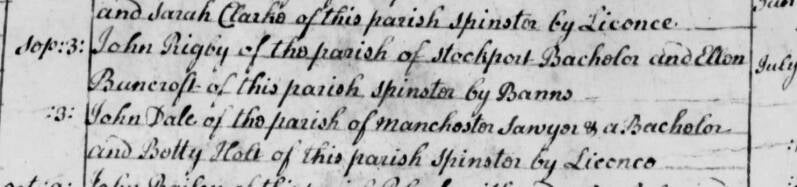 and Sarah Clarke of this parish Spinster by Licence.
Sep: 3: John Rigby of the parish of Stockport Bachelor and Ellen
July
Bancroft of this parish Spinster by Banns
:3: John Dale of the parish of Manchester Sawyer & a Bachelor
and Betty Holt of this parish Spinster by Licence